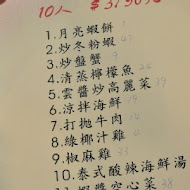 10人 $3790元
1.月亮蝦餅
2.炒冬粉蝦
3.炒盤蟹
4.清蒸檸檬魚
5.雲醬炒高麗菜
6.涼拌海鮮
7.打拋牛肉
8.綠椰汁雞
9.椒麻雞
10.泰式酸辣海鮮湯
11.蝦醬空心菜